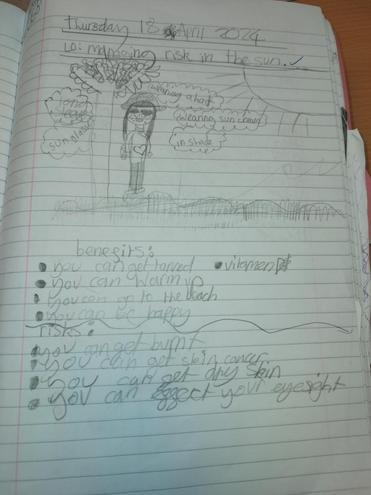 Thursday 18 April 2024
LO: managing risk in the sun.
wearing a hat
long
sun glasses
wearing sun cream
in shade
benegits:
you can get tanned • vitamen D
you can warm up
you can go to the beach
you can be happy
risks:
you can get burnt
you can get skin cancer
you can get dry skin
you can effect your eyesight